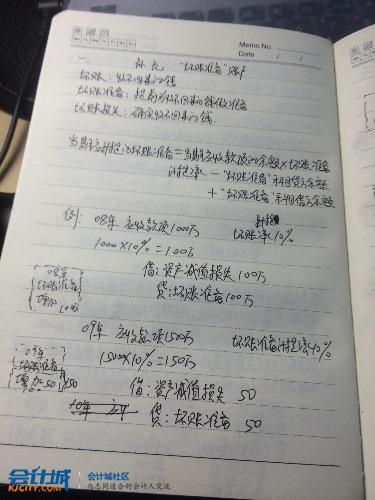 Memo No.
Date / /
一 补充 "坏账准备"账户
坏账：收不回来的钱
坏账准备：提前为收不回来的钱做准备
坏账损失：确实收不回来的钱
当期应计提的坏账准备=当期应收款项的余额×坏账准备
计提率-"坏账准备"科目贷方余额
+"坏账准备"科目借方余额
例：08年 应收款项1000万 坏账率10%
计提
1000×10%=100万
借：资产减值损失 100万
贷：坏账准备100万
08年
坏账准备
增加100万
09年 应收款项1500万 坏账准备计提率10%
1500×10%=150万
09年
坏账准备
增加50 150
借：资产减值损失 50
10年
贷：坏账准备 50
会计城
KJCITY.COM
会计城社区
与志同道合的会计人交流